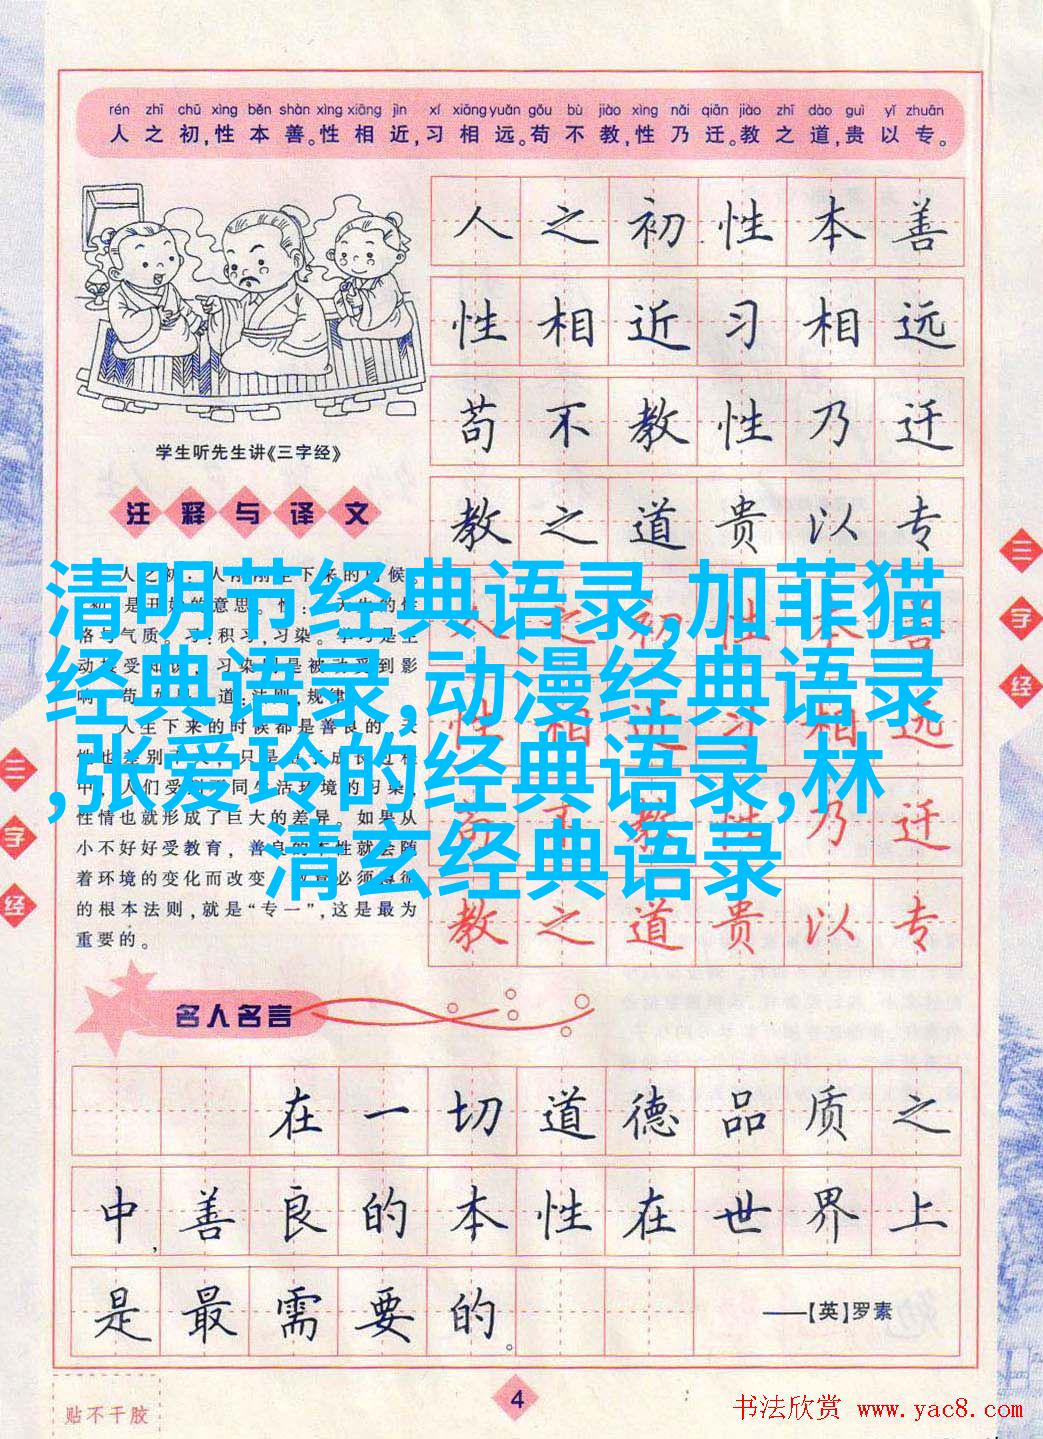 rén zhī chū xìng běn shàn xìng xiāng jìn xí xiāng yuǎn gǒu bù jiào xìng nǎi qiān jiào zhī dào guì yǐ zhuān
人之初,性本善。性相近,习相远。苟不教,性乃迁。教之道,贵以专。
人之初性本善
性相近习相远
苟不教性乃迁
教之道贵以专
学生听先生讲《三字经》
注释与译文
清明节经典语录,加菲猫
经典语录,动漫经典语录
,张爱玲的经典语录,林
清玄经典语录
人生下来的时候都是善良的,天
性情也就形成了巨大的差异。如果从
小不好好受教育,善良的本性就会随
着环境的变化而改变
的根本法则,就是“专一”,这是最为
重要的。
性相近习相远
教之道贵以专
三字经
三字经
名人名言
在一切道德品质之
中,善良的本性在世界上
是最需要的。
——【英】罗素
4
贴不干胶
书法欣赏 www.yac8.com